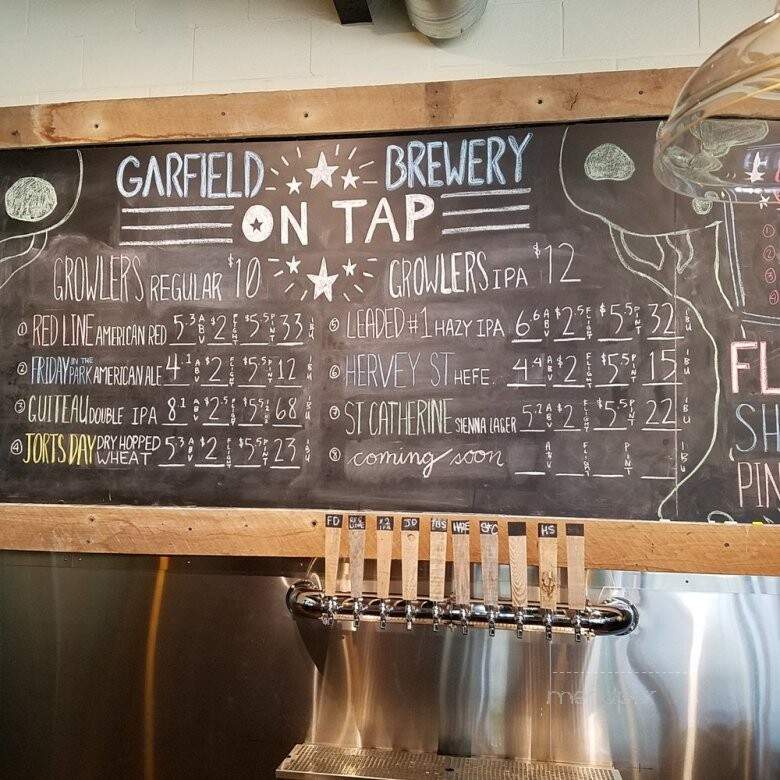 GARFIELD BREWERY
ON TAP
GROWLERS REGULAR $10
GROWLERS IPA $12
① RED LINE AMERICAN RED 5.3 ABV $2 FLIGHT $5.5 PINT 33 IBU
② FRIDAY IN THE PARK AMERICAN ALE 4.1 ABV $2 FLIGHT $5.5 PINT 12 IBU
③ GUITEAU DOUBLE IPA 8.1 ABV $2.5 FLIGHT $5.5 68 IBU
④ JORTS DAY DRY HOPPED WHEAT 5.3 ABV $2 FLIGHT $5.5 PINT 23 IBU
⑤ LEADED #1 HAZY IPA 6.6 ABV $2.5 FLIGHT $5.5 PINT 32 IBU
⑥ HERVEY ST HEFE. 4.4 ABV $2 FLIGHT $5.5 PINT 15 IBU
⑦ ST CATHERINE SIENNA LAGER 5.2 ABV $2 FLIGHT $5.5 PINT 22 IBU
⑧ coming soon ABV FLIGHT PINT IBU
FL
SH
PIN
FD
RED LINE
JD
STC
HS